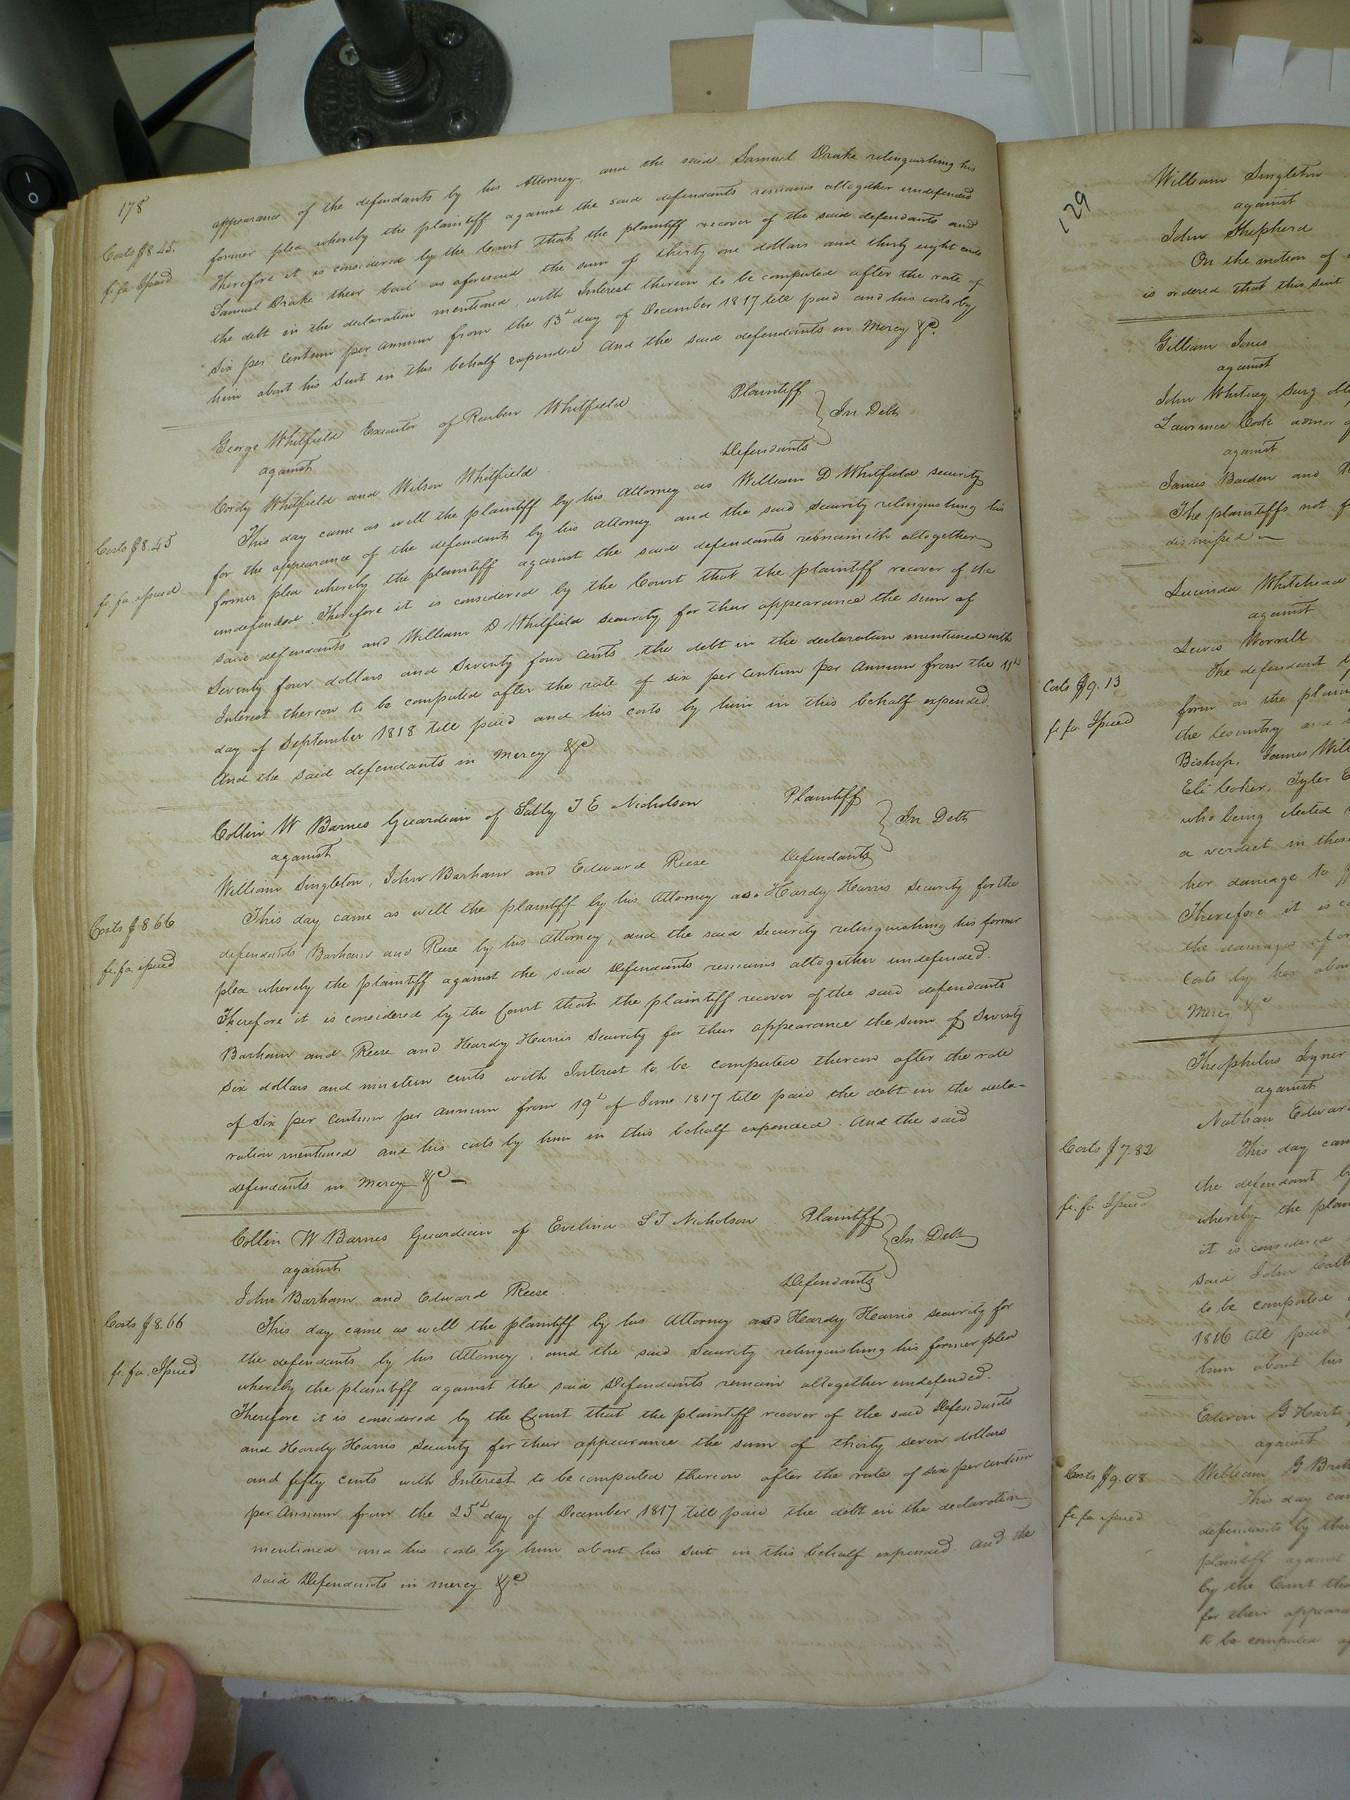 178
appearance of the defendants by his Attorney, and the said Samuel Drake relinquishing his
former plea whereby the plaintiff against the said defendants remains altogether undefended
Costs $8.45.
Therefore it is considered by the Court that the plaintiff recover of the said defendants and
fi. fa. Issued
Samuel Drake their bail as aforesaid the sum of thirty one dollars and thirty eight cents
the debt in the declaration mentioned with Interest thereon to be computed after the rate of
six per centum per annum from the 13th day of December 1817 till paid and his costs by
him about his Suit in this behalf expended And the said defendants in Mercy &c.
George Whitfield Executor of Reuben Whitfield Plaintiff
against In Debt
Cordy Whitfield and Wilson Whitfield Defendants
This day came as well the plaintiff by his Attorney as William D Whitfield security
Costs $8.45
for the appearance of the defendants by his attorney and the said Security relinquishing his
fi. fa. issued
former plea whereby the plaintiff against the said defendants remaineth altogether
undefended. Therefore it is considered by the Court that the plaintiff recover of the
said defendants and William D Whitfield security for their appearance the sum of
Seventy four dollars and Seventy four cents the debt in the declaration mentioned with
Interest thereon to be computed after the rate of six per centum per Annum from the 11th
day of September 1818 till paid and his costs by him in this behalf expended.
And the said defendants in Mercy &c
Collin W Barnes Guardian of Sally T E Nicholson Plaintiff
against In Debt
William Singleton, John Barham and Edward Reese Defendants
This day came as well the plaintiff by his Attorney as Hardy Harris Security for the
Costs $8.66
defendants Barham and Reese by his Attorney, and the said Security relinquishing his former
fi. fa. issued
plea whereby the plaintiff against the said Defendants remains altogether undefended.
Therefore it is considered by the Court that the plaintiff recover of the said defendants
Barham and Reese and Hardy Harris Security for their appearance the sum of Seventy
Six dollars and nineteen cents with Interest to be computed thereon after the rate
of Six per centum per annum from 19th of June 1817 till paid the debt in the decla-
ration mentioned and his costs by him in this behalf expended. And the said
defendants in Mercy &c —
Collin W Barnes Guardian of Evelina S T Nicholson Plaintiff
against In Debt
John Barham and Edward Reese Defendants
Costs $8.66
This day came as well the plaintiff by his Attorney as Hardy Harris security for
the defendants by his Attorney, and the said Security relinquishing his former plea
fi. fa. Issued
whereby the plaintiff against the said Defendants remain altogether undefended.
Therefore it is considered by the Court that the plaintiff recover of the said Defendants
and Hardy Harris Security for their appearance the sum of thirty seven dollars
and fifty cents with Interest to be computed thereon after the rate of six per centum
per Annum from the 25th day of December 1817 till paid the debt in the declaration
mentioned and his costs by him about his suit in this behalf expended and the
said Defendants in mercy &c
179
William Singleton
against
John Shepherd
On the motion of
is ordered that this suit
Gilliam Jones
against
John Whitney Surg
Lawrence Cook
against
James Barden and
The plaintiffs not
dismissed
Lucinda Whitehead
against
Lewis Worrell
The defendant
Costs $9.13
form as the plain
fi. fa. Issued
the Country and
Bishop, James
Eli Coker, Tyler
who being elected
a verdict in these
her damage to
Therefore it is
the damages
Costs by her
Mercy &c
Theophilus Joyner
against
Nathan Edward
Costs $7.82
This day
the defendant by
fi. fa. Issued
whereby the plain
it is considered
said John
to be computed
1816 till paid
him about his
Edwin G Hart
against
Costs $9.08
William G
This day
fi. fa. issued
defendants by their
plaintiff against
by the Court that
for their appearance
to be computed